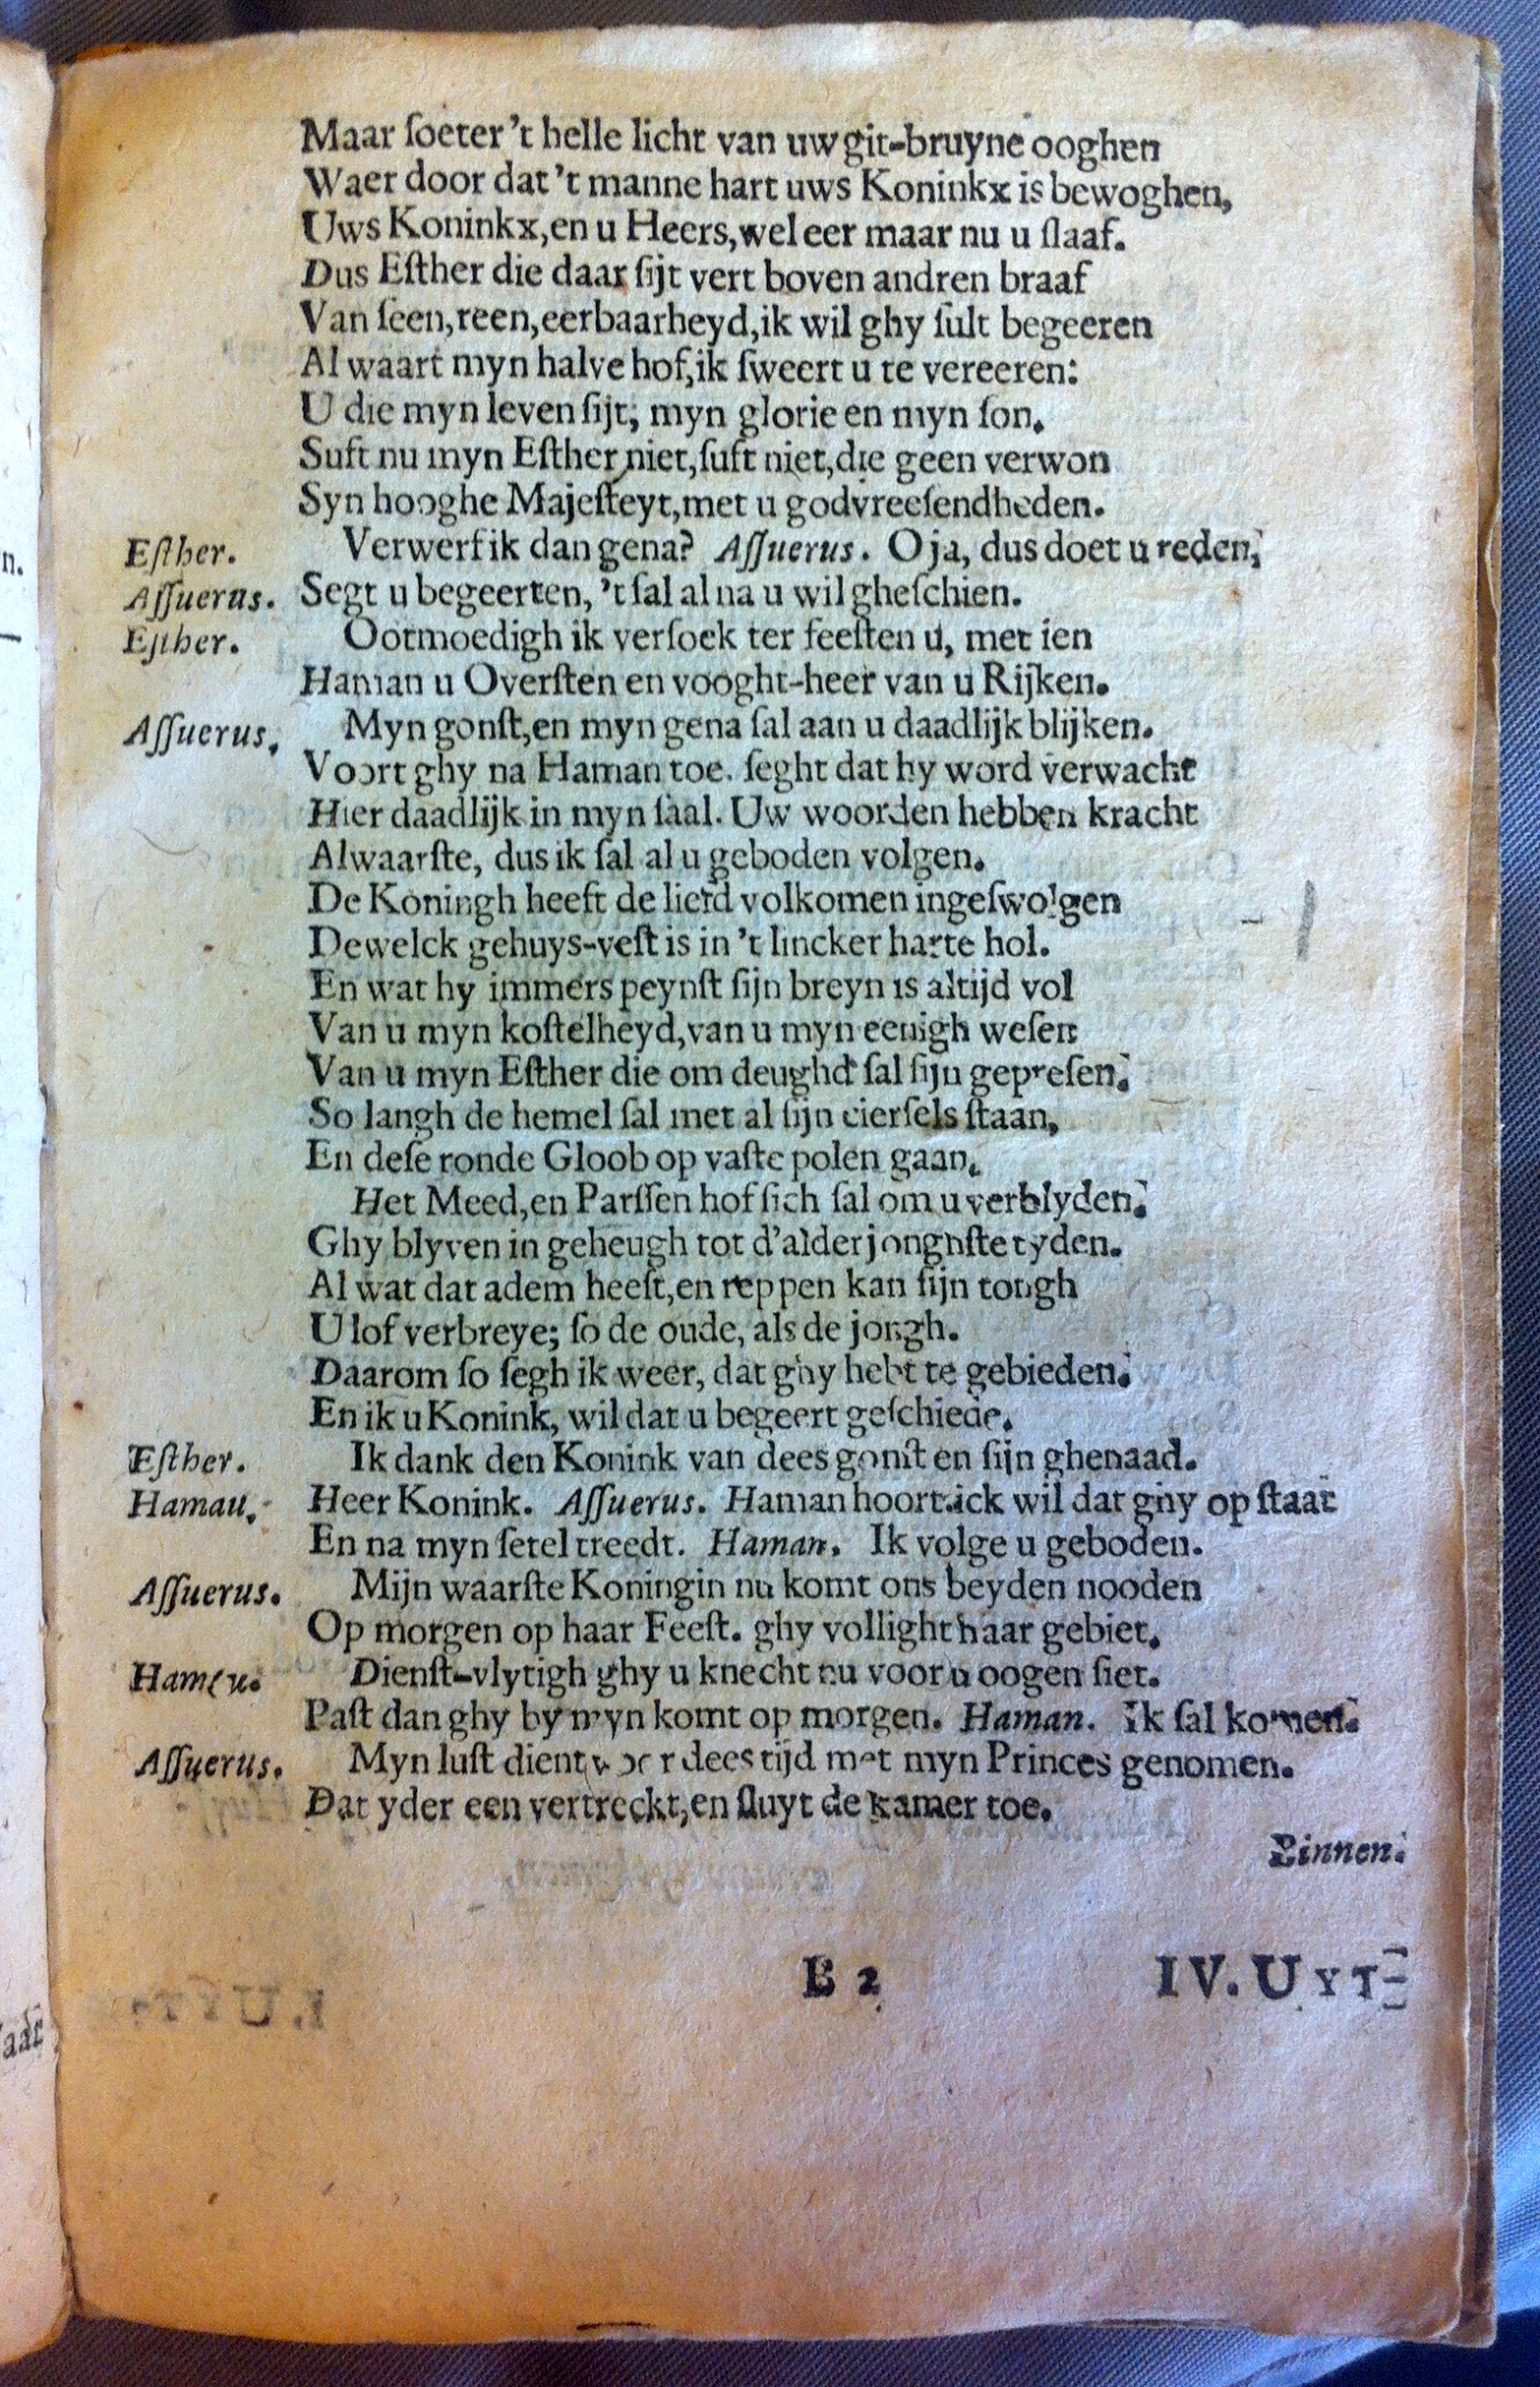 Maar ſoeter 't helle licht van uw git-bruyne ooghen
Waer door dat 't manne hart uws Koninkx is bewoghen,
Uws Koninkx, en u Heers, wel eer maar nu u ſlaaf.
Dus Eſther die daar ſijt vert boven andren braaf
Van ſeen, reen, eerbaarheyd, ik wil ghy ſult begeeren
Al waart myn halve hof, ik ſweert u te vereeren:
U die myn leven ſijt, myn glorie en myn ſon.
Suft nu myn Eſther niet, ſuft niet, die geen verwon
Syn hooghe Majeſteyt, met u godvreeſendheden.
Eſther. Verwerf ik dan gena? Aſſuerus. O ja, dus doet u reden,
Aſſuerus. Segt u begeerten, 't ſal al na u wil gheſchien.
Eſther. Ootmoedigh ik verſoek ter feeſten u, met ien
Haman u Overſten en vooght-heer van u Rijken.
Aſſuerus. Myn gonſt, en myn gena ſal aan u daadlijk blijken.
Voort ghy na Haman toe. ſeght dat hy word verwacht
Hier daadlijk in myn ſaal. Uw woorden hebben kracht
Alwaarſte, dus ik ſal al u geboden volgen.
De Koningh heeft de liefd volkomen ingeſwolgen
Dewelck gehuys-veſt is in 't lincker harte hol.
En wat hy immers peynſt ſijn breyn is altijd vol
Van u myn koſtelheyd, van u myn eenigh weſen
Van u myn Eſther die om deughd ſal ſijn gepreſen.
So langh de hemel ſal met al ſijn cierſels ſtaan,
En deſe ronde Gloob op vaſte polen gaan.
Het Meed, en Parſſen hof ſich ſal om u verblyden.
Ghy blyven in geheugh tot d'alderjongnſte tyden.
Al wat dat adem heeft, en reppen kan ſijn tongh
U lof verbreye; ſo de oude, als de jongh.
Daarom ſo ſegh ik weer, dat ghy hebt te gebieden.
En ik u Konink, wil dat u begeert geſchiede.
Eſther. Ik dank den Konink van dees gonſt en ſijn ghenaad.
Haman. Heer Konink. Aſſuerus. Haman hoort. ick wil dat ghy op ſtaat
En na myn ſetel treedt. Haman. Ik volge u geboden.
Aſſuerus. Mijn waarſte Koningin nu komt ons beyden nooden
Op morgen op haar Feeſt. ghy vollight haar gebiet.
Haman. Dienſt-vlytigh ghy u knecht nu voor u oogen ſiet.
Paſt dan ghy by myn komt op morgen. Haman. Ik ſal komen.
Aſſuerus. Myn luſt dient voor dees tijd met myn Princes genomen.
Dat yder een vertreckt, en ſluyt de kamer toe.
Binnen.
B 2 IV. UYT-